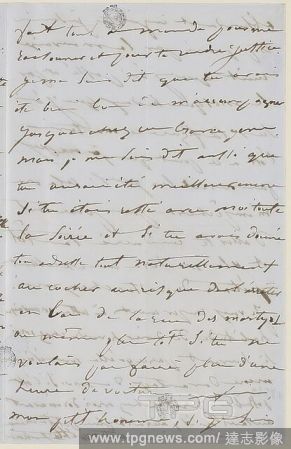 fait tout au monde pour me
raisonner et pour te rendre justice
je me suis dit que tu avais
été bien bon de m'accompagner
jusque chez
mais je me suis dit aussi que
tu aurais été meilleur encore
si tu étais resté avec moi toute
la soirée et si tu avais donné
ton adresse tout naturellement
au cocher au risque de
en bas de la rue des martyrs
ou même plus tôt si tu ne
voulais pas faire plus d'une
heure de voiture
mon petit homme, si je
TPG
www.tpgnews.com/ 達志影像